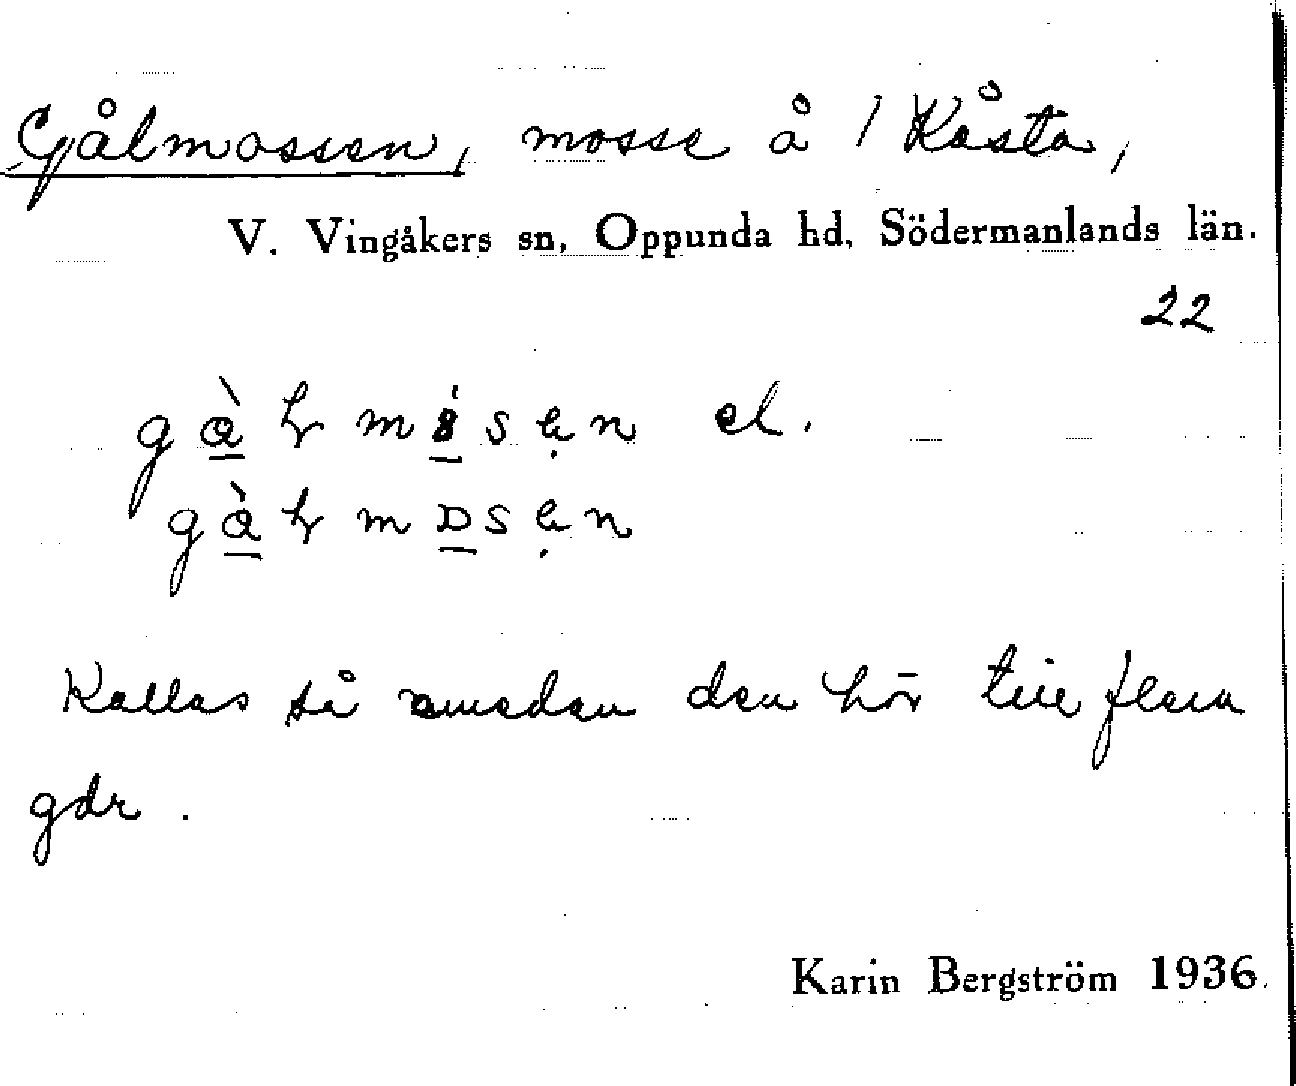 Gålmossen, mosse å 1 Kåsta,
V. Vingåkers sn, Oppunda hd, Södermanlands län.
22
el.
Kallas så emedan den hör till flera
gdr.
Karin Bergström 1936.